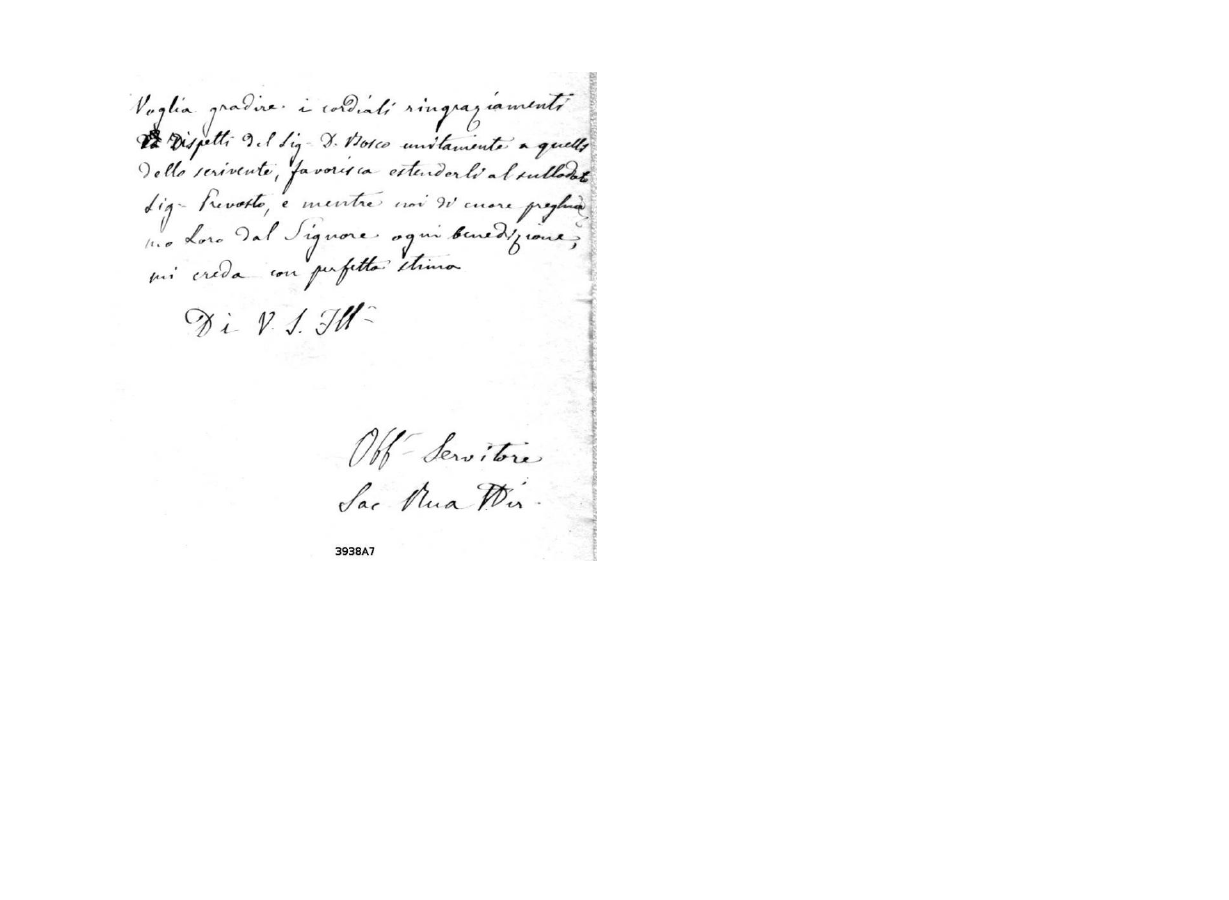 Voglia gradire i cordiali ringraziamenti
Rispetti del Sig. D. Bosco unitamente a quelli
dello scrivente, favorisca estenderli al sullodato
Sig. Prevosto, e mentre noi di cuore preghia
mo Loro dal Signore ogni benedizione,
mi creda con perfetta stima
Di V. S. Ill.
Obb. Servitore
Sac Rua
3938A7